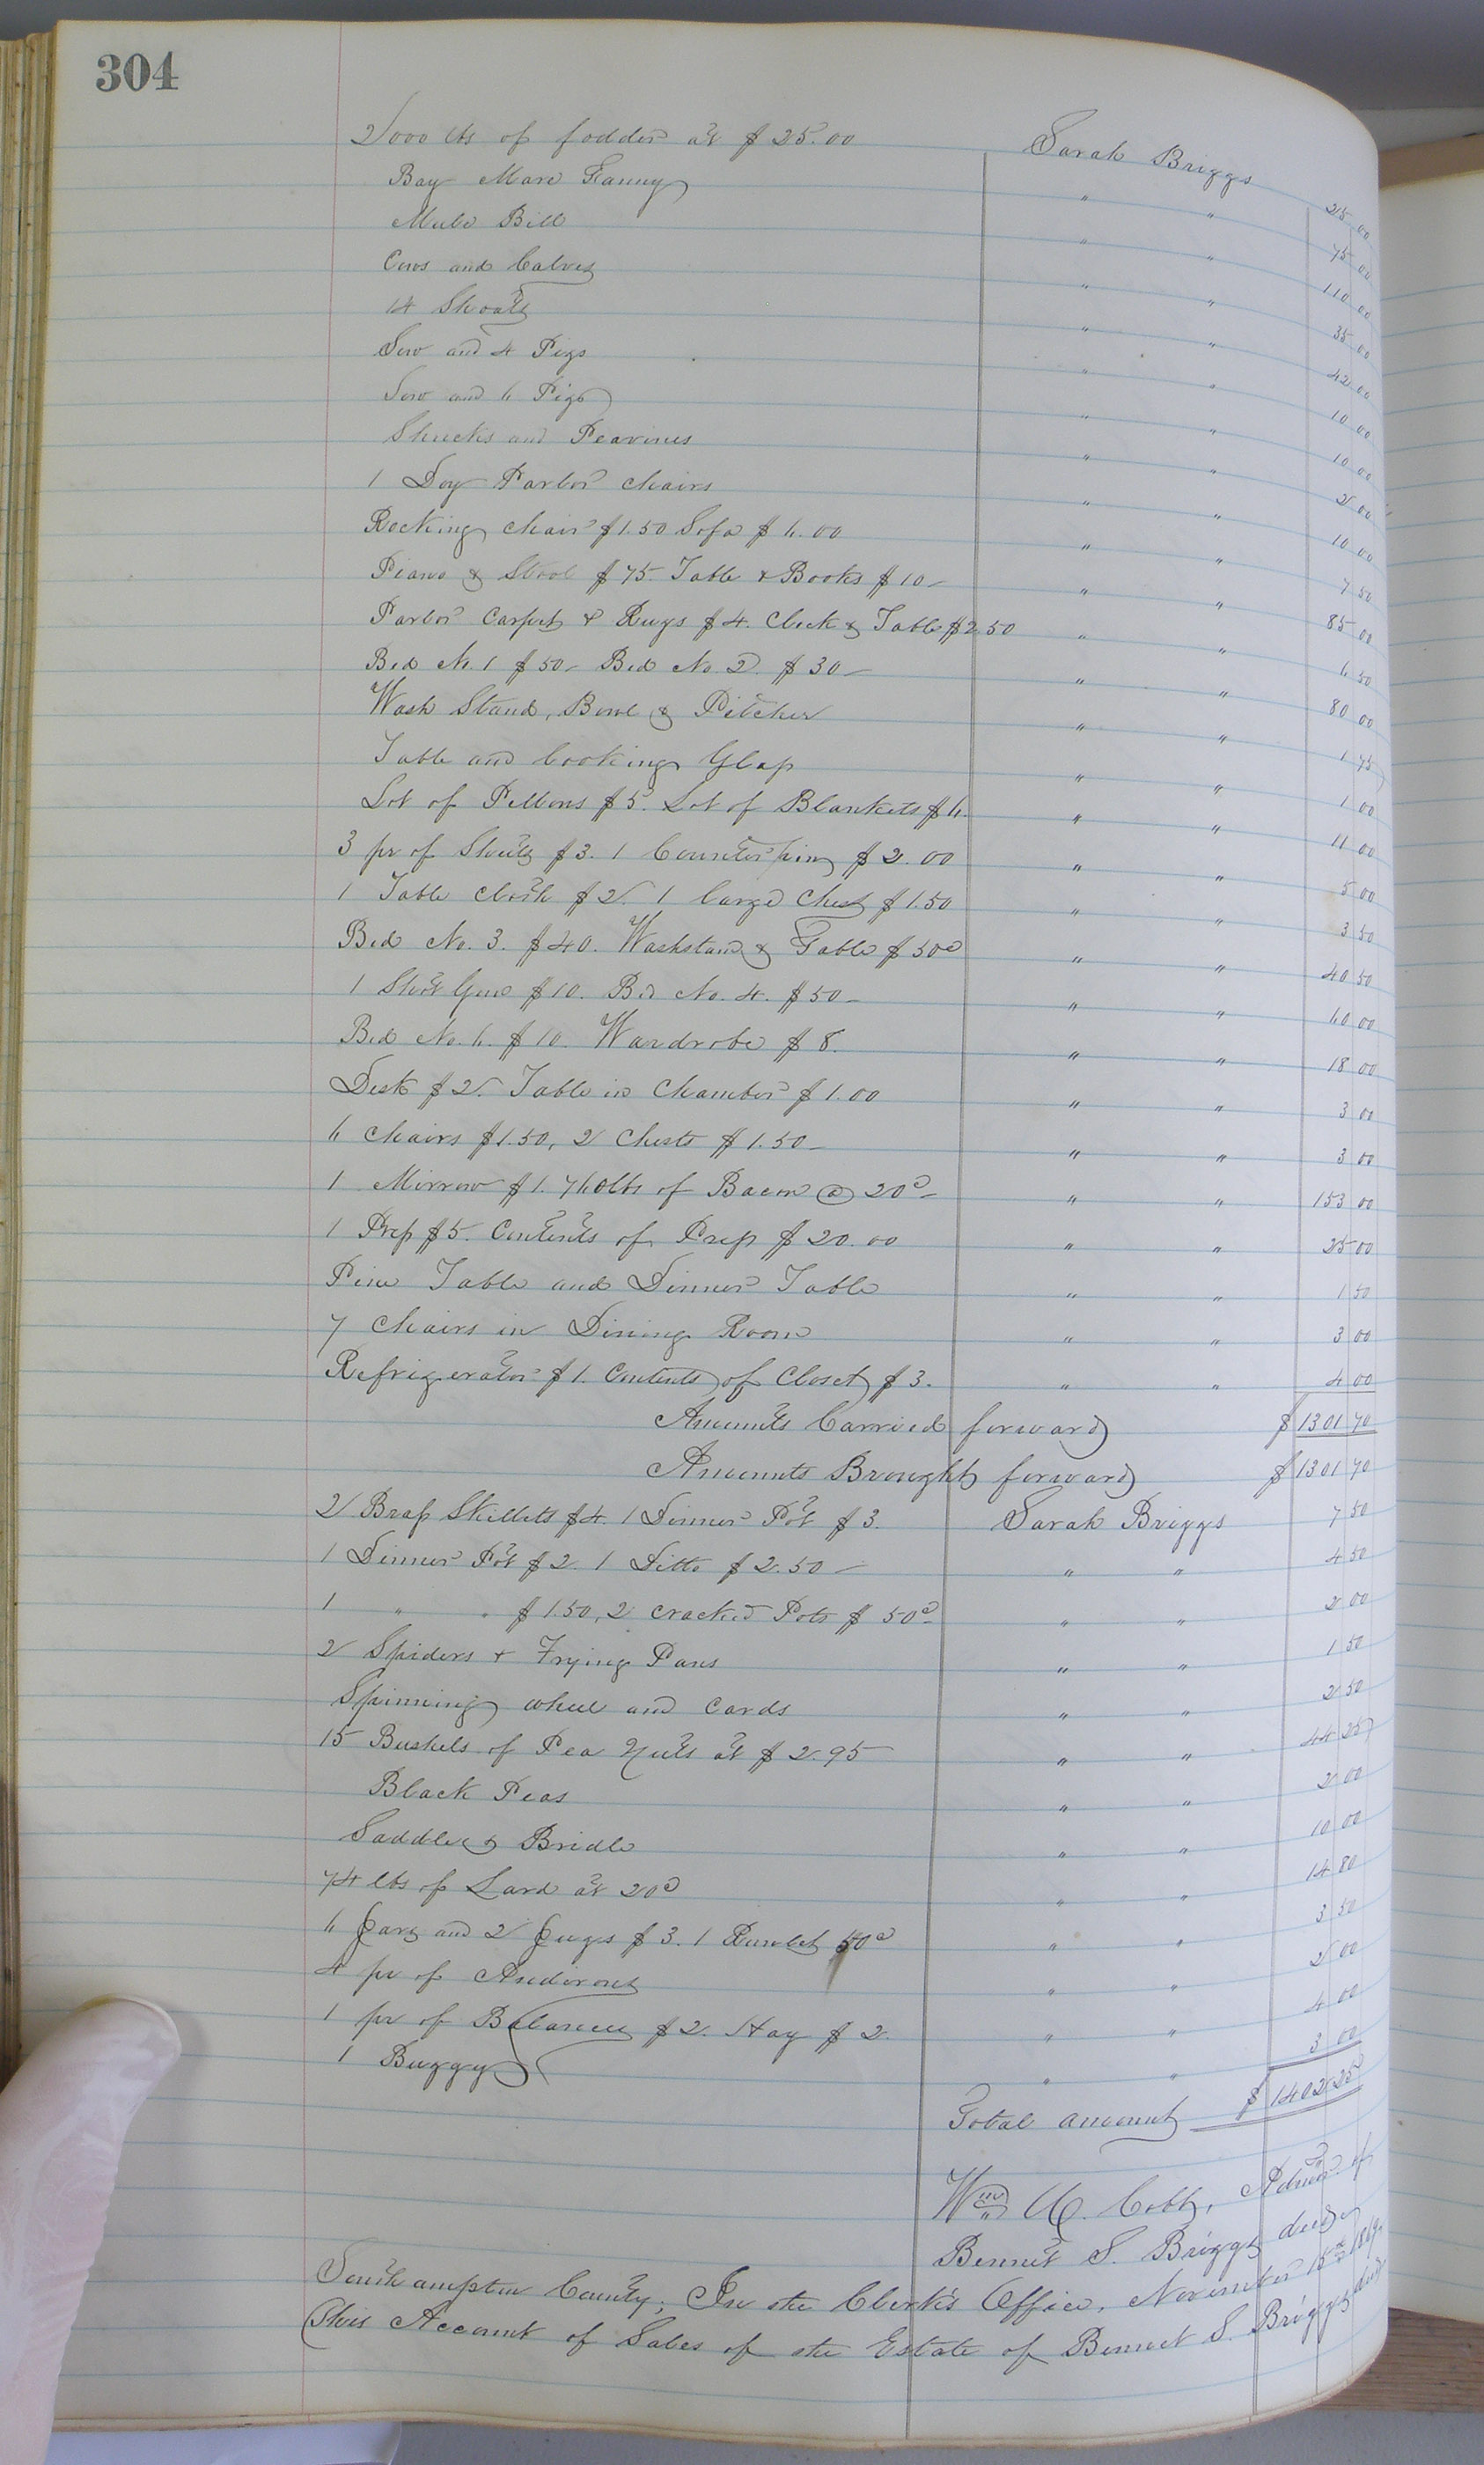 304
2000 lbs of fodder at $25.00 Sarah Briggs 25 00
Bay Mare Fanny " " 75 00
Mule Bill " " 110 00
Cows and Calves " " 35 00
14 Shoats " " 42 00
Sow and 4 Pigs " " 10 00
Sow and 6 Pigs " " 10 00
Shucks and Peavines " " 2 00
1 Doz Parlor chairs " " 10 00
Rocking chair $1.50 Sofa $6.00 " " 7 50
Piano & Stool $75. Table & Books $10 " " 85 00
Parlor Carpet & Rugs $4. Clock & Table $2.50 " " 6 50
Bed No. 1 $50 Bed No. 2. $30 " " 80 00
Wash Stand, Bowl & Pitcher " " 1 75
Table and Looking Glass " " 1 00
Lot of Pillows $5. Lot of Blankets $6. " " 11 00
3 pr of Sheets $3. 1 Counterpin $2.00 " " 5 00
1 Table cloth $2. 1 large Chest $1.50 " " 3 50
Bed No. 3. $40. Washstand & Table $50c " " 40 50
1 Shot Gun $10. Bed No. 4. $50 " " 60 00
Bed No. 6. $10. Wardrobe $8. " " 18 00
Desk $2. Table in Chamber $1.00 " " 3 00
6 chairs $1.50, 2 Chests $1.50 " " 3 00
1 Mirrow $1. 760 lbs of Bacon @ 20c " " 153 00
1 Press $5. Contents of Press $20.00 " " 25 00
Pine Table and Dinner Table " " 1 50
7 Chairs in Dining Room " " 3 00
Refrigerator $1. Contents of Closet $3. " " 4 00
Amounts Carried forward $1301 70
Amounts Brought forward $1301 70
2 Brass Skillets $4. 1 Dinner Pot $3. Sarah Briggs 7 50
1 Dinner Pot $2. 1 Ditto $2.50 " " 4 50
1 " " $1.50, 2 cracked Pots $50c " " 2 00
2 Spiders & Frying Pans " " 1 50
Spinning wheel and Cards " " 2 50
15 Bushels of Pea Nuts at $2.95 " " 44 25
Black Peas " " 2 00
Saddle & Bridle " " 10 00
74 lbs of Lard at 20c " " 14 80
6 Jars and 2 Jugs $3. 1 Runlet 50c " " 3 50
4 pr of Andirons " " 2 00
1 pr of Balances $2. Hay $2. " " 4 00
1 Buggy " " 3 00
Total amount $1402 25
Wm U. Cobb, Admr of
Bennet S. Briggs decd
Southampton County; In the Clerk's Office, November 15th 1869.
This Account of Sales of the Estate of Bennet S. Briggs decd